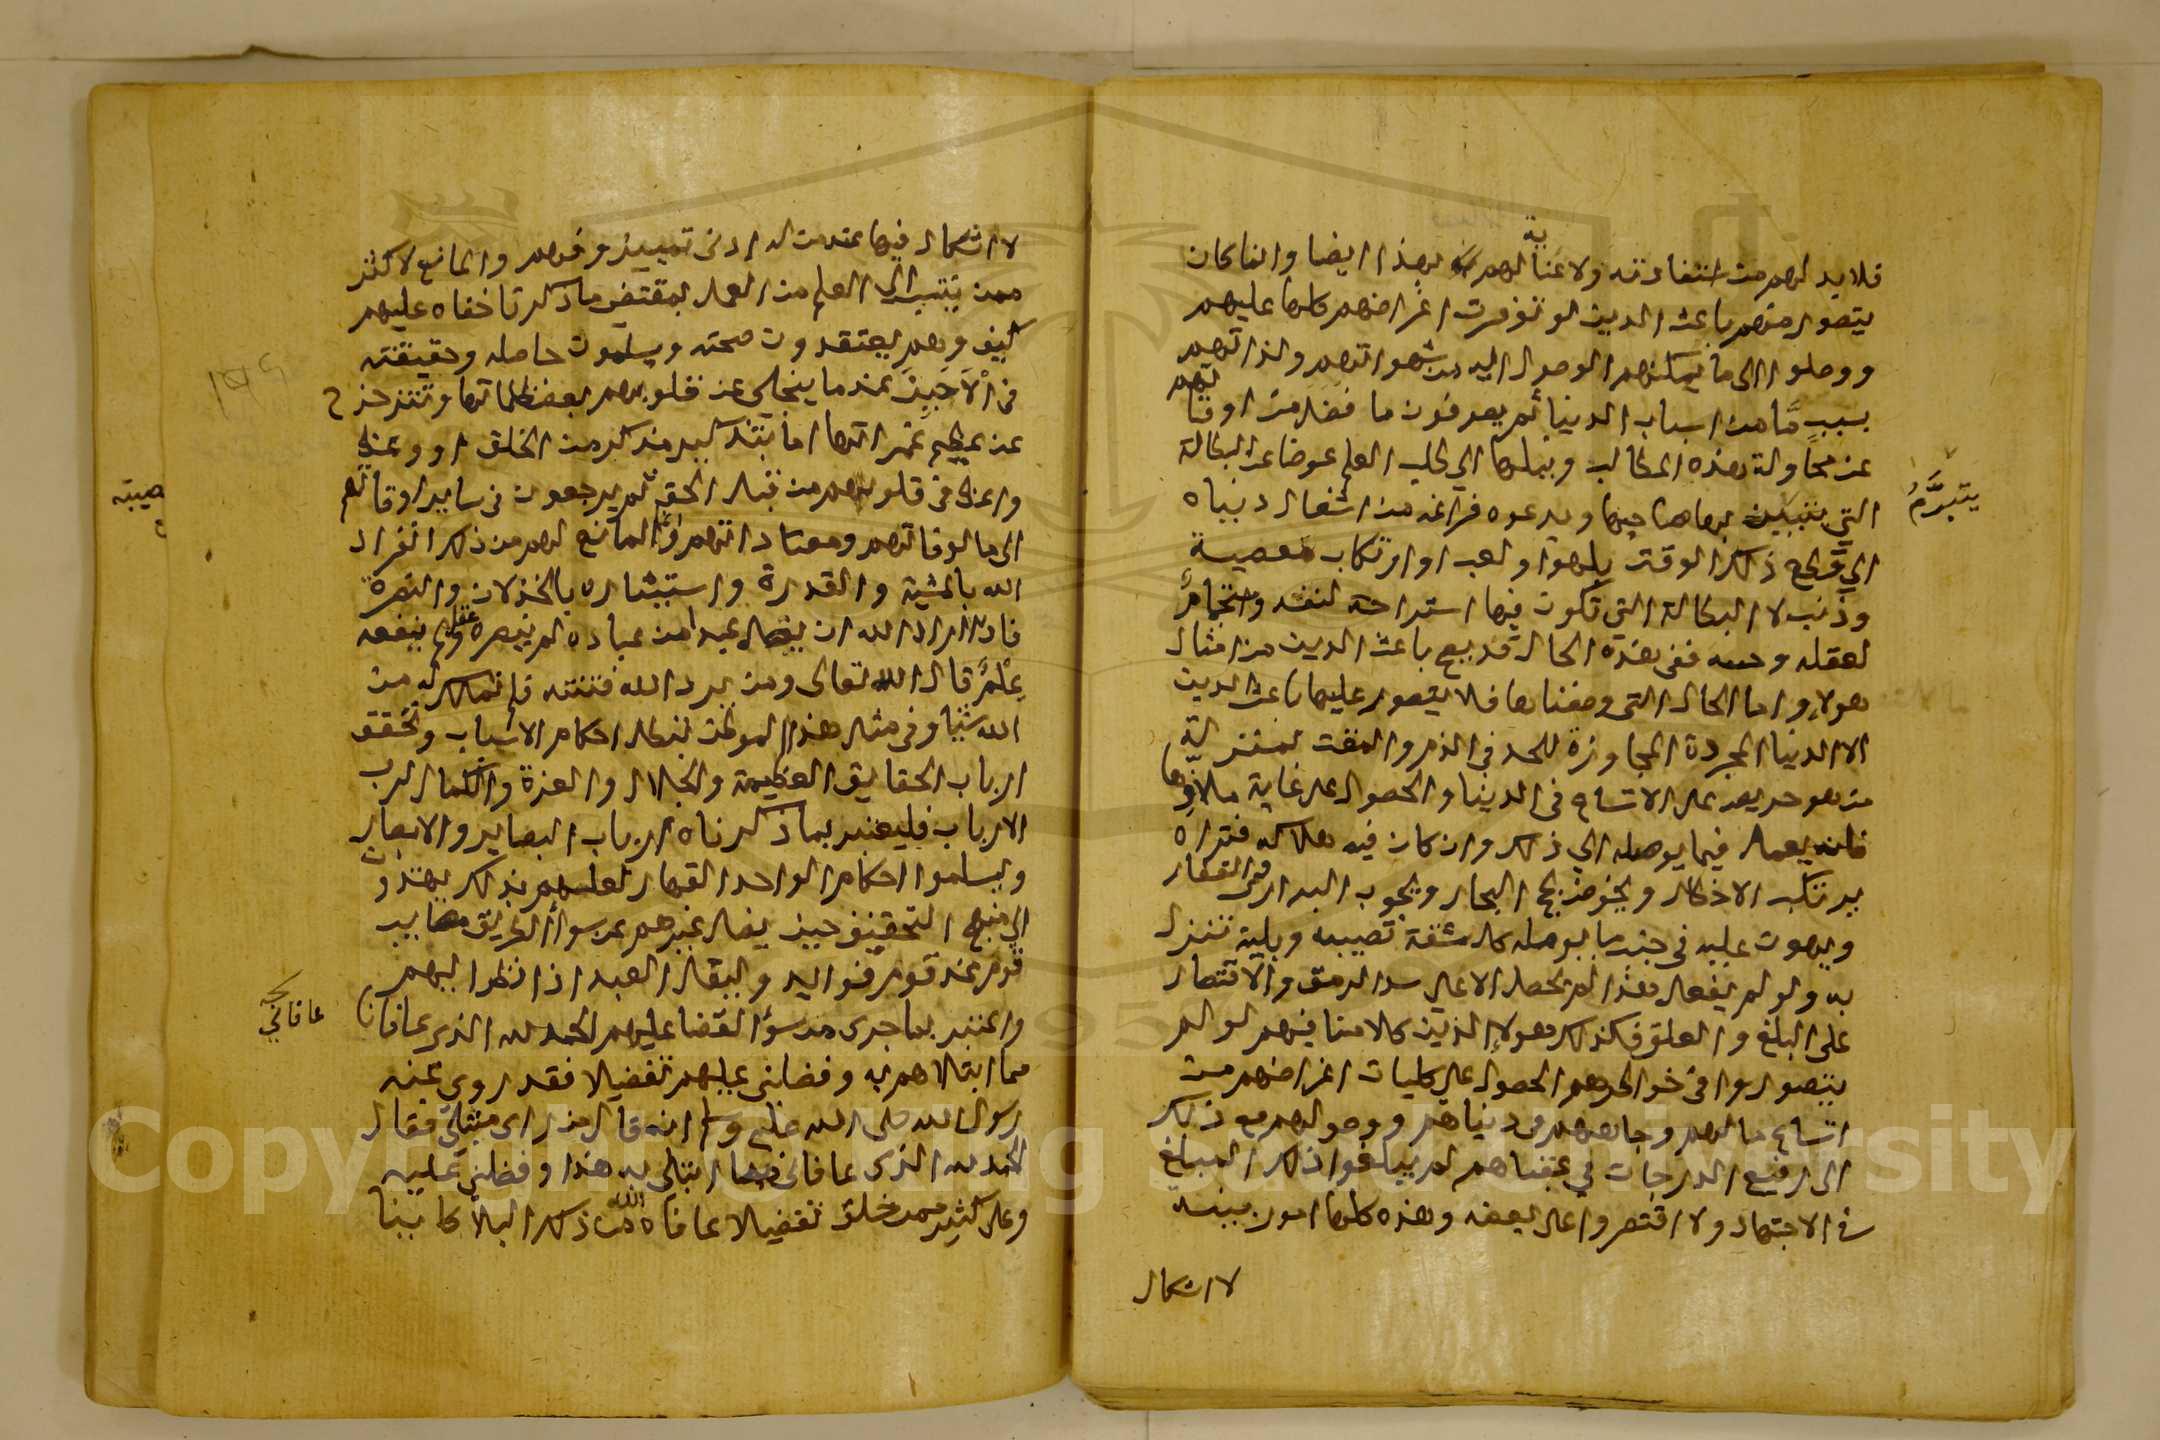 فلا بد لهم من استفادته ولا غنا ية لهم بهذا ايضا وانما كان
يتصور منهم باعث الدين لو توفرت اغراضهم كلها عليهم
ووصلوا الى ما يمكنهم الوصول اليه من شهواتهم ولذاتهم
بسبب ما من اسباب الدنيا ثم يصرفون ما فضل من اوقاتهم
عن محاولة هذه المطالب ونيلها الي طلب العلم عوضا عن البطالة
التي يتبرم بها صاحبها ويدعوه فراغه من اشغال دنياه
يتبرَّمُ
الي قطع ذلك الوقت بلهو او لعب او ارتكاب معصية
وذنب لا البطالة التي تكون فيها استراحة لنفسه واستجمام
لعقله وحسه ففى هذه الحال قد يقع باعث الدين من امثال
هولاء واما الحال التى وصفناها فلا يتصور عليها باعث الدين
الا الدنيا المجردة المجاوزة للحد في الذم والمقت بمنزلة
من هو حريص على الاتساع فى الدنيا والحصول على غاية ملاذها
فانه يعمل فيما يوصله الي ذلك وان كان فيه هلاكه فتراه
يرتكب الاخطار ويخوض لجج البحار ويجوب البرارى والقفار
ويهون عليه فى جنب ما يوصله كل مشقة تصيبه وبلية تنزل
به ولو لم يفعل هذا لم يحصل الا على سد الرمق والاقتصار
على البلغ والعلق فكذلك هولاء الذين كلامنا فيهم لو لم
يتصوروا في خواطرهم الحصول على كليات اغراضهم من
اتساع مالهم وجاههم في دنياهم ووصولهم مع ذلك
الى ارفع الدرجات في عقباهم لم يبلغوا ذلك المبلغ
في الاجتهاد ولا اقتصروا على بعضه وهذه كلها امور بينة
لا اشكال
لا اشكال فيها عند من له ادنى تمييز وفهم والمانع لاكثر
ممن ينتسب الي العلم من العمل بمقتضى ما ذكرنا خفاه عليهم
كيف وهم يعتقدون صحته ويسلمون حاصله وحقيقته
فى الاحيين عندما ينجلى عن قلوبهم بعض ظلماتها وتتزحزح
عن عظيم غمراتها اما بتذكير مذكر من الخلق او وعظ
واعظ في قلوبهم من قبل الحق ثم يرجعون فى ساير اوقاتهم
الى مالوفاتهم ومعتاداتهم وانما المانع لهم من ذلك انفراد
الله بالمشية والقدرة واستيثاره بالخذلان والنصرة
فاذا اراد الله ان يضل عبدا من عباده لم ينصره عقل ولم ينفعه
علم قال الله تعالى ومن يرد الله فتنته فلن تملك له من
الله شيا وفى مثل هذا الموطن تبطل احكام الاسباب وتحقق
ارباب الحقايق العظيمة والجلال والعزة والكمال لرب
الارباب فليعتبر بما ذكرناه ارباب البصاير والابصار
وليسلموا احكام الواحد القهار لعلهم بذلك يهتدون
الي منهج التحقيق حين يضل غيرهم عن سوا الطريق مصايب
قوم عند قوم فوايد وليقل العبد اذا نظر اليهم
واعتبر بما جرى من سؤ القضا عليهم الحمد لله الذى عافانا
عافاني
مما ابتلاهم به وفضلنى عليهم تفضيلا فقد روى عنه
رسول الله صلى الله عليه وسلم انه قال من راى مبتلى فقال
الحمد لله الذى عافانى مما ابتلى به هذا وفضلنى عليه
وعلى كثير ممن خلق تفضيلا عافاه الله من ذلك البلا كاينا